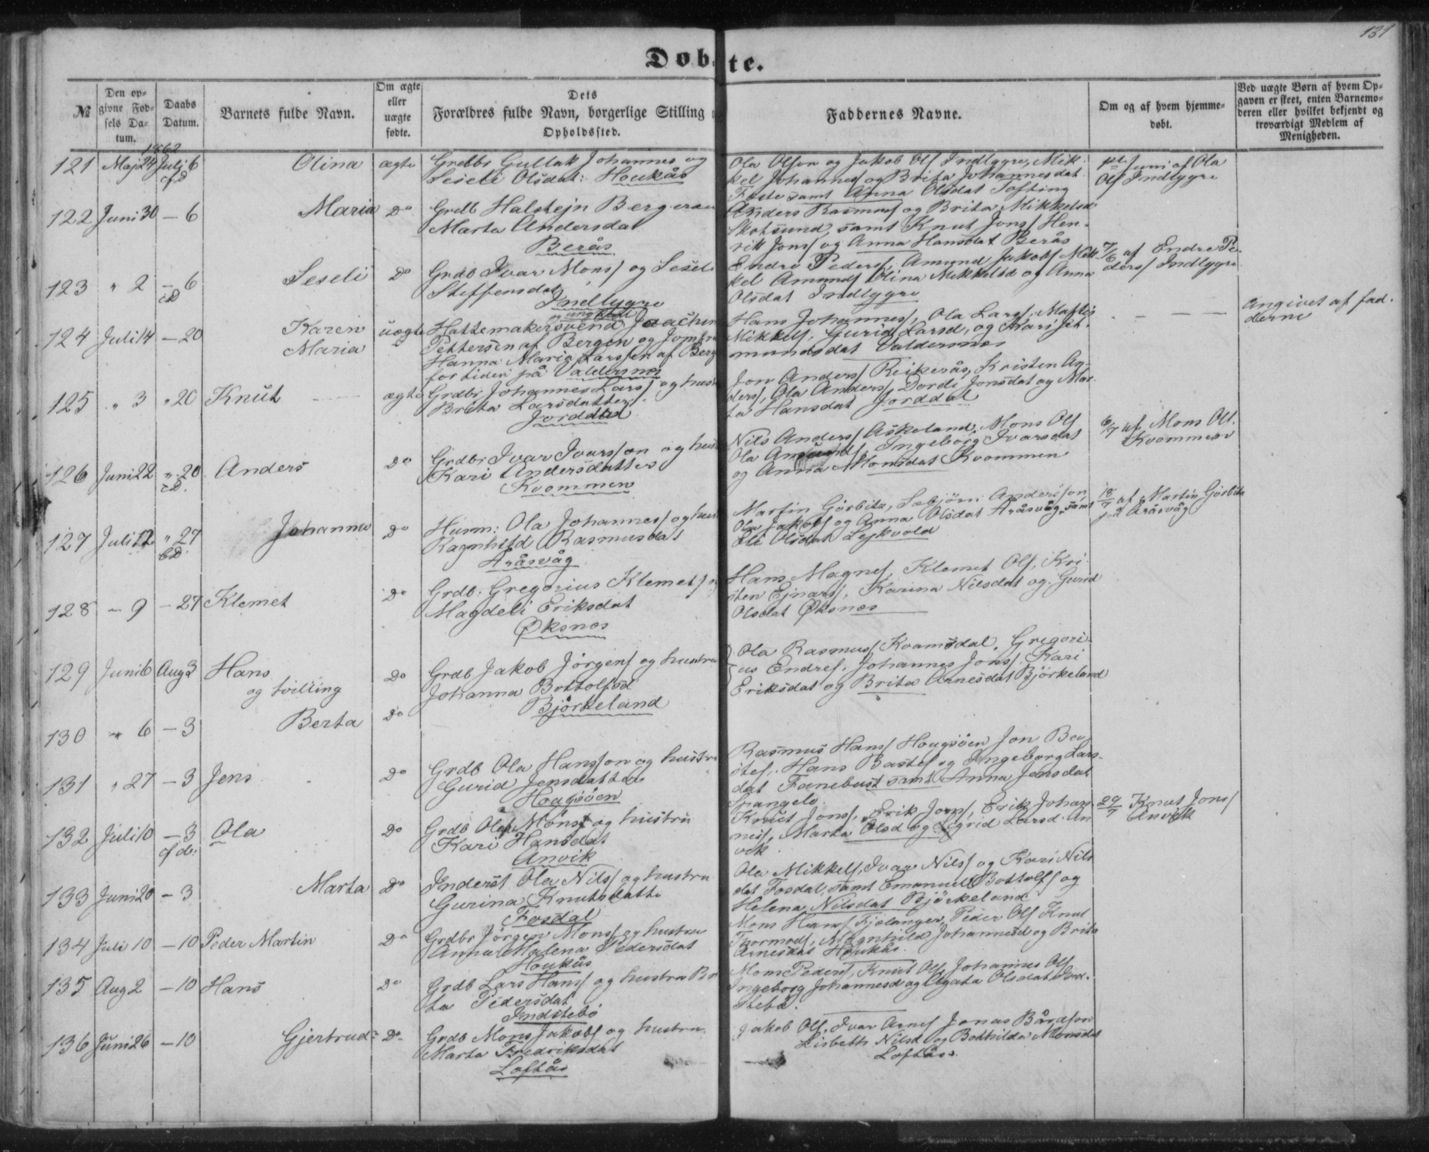 131
Døbte.
№
Den opgivne Fødsels Datum.
Daabs Datum.
Barnets fulde Navn.
Om ægte eller uægte fødte.
Dets Forældres fulde Navn, borgerlige Stilling
Opholdssted.
Faddernes Navne.
Om og af hvem hjemmedøbt.
Ved uægte Børn af hvem Opgaven er skeet, enten Barnemoderen eller hvilket bekjendt og troværdigt Medlem af Menigheden.
1862
121 Maj 29 Juli 6 Olina ægte Grdbr Gullak Johannes og
Seseli Olsdat: Houkås
Ola Olsen og Jakob Ols Indlygre, Mik-
kel Johannes og Brita Johannesdat
samt Anna Olsdat Tofting
Juni af Ola
Ols Indlygre
122 Juni 30 – 6 Maria Do Grdb Halstejn Bergesen
Marta Andersdat
Berås
Anders Rasmus og Brita Mikkelsd
Skotsund, samt Knut Jons Hen-
rik Jons og Anna Hansdat Berås
123 " 2 – 6 Seseli Do Grdb Ivar Mons og Sesel
Steffensdat
Indlygre
Endre Peders, Amund Jakobs Mik-
kel Amunds Olina Mikkelsd og Anna
Olsdat Indlygre
7/6 af Endre Pe-
ders Indlygre
124 Juli 14 – 20 Karen
Maria
uægte
ungkarl
Hattemakersvend Joachim
Pettersen af Bergen og Jomfru
Hanna Marie Larssen af Berg
for tiden på Valdersnes
Hans Johannes, Ola Lars,
Mikkels, Gurid Larsd, og Mari Jet-
mundsdat Valdersnes
Angivet af fad-
derne
125 " 3 " 20 Knut ægte Grdbr Johannes Lars og hust
Brita Larsdatter
Jorddal
Jon Anders Reikerås, Kristen An-
ders, Ola Anders, Dordi Jonsdat og Mar-
ta Hansdat Jorddal
126 Juni 22 " 20 Anders Do Grdbr Ivar Ivarsson og hust
Kari Andersdatter
Kvommen
Nils Anders Askeland, Mons Ols
Ola Ingeborg Ivarsdat
og Anna Monsdat Kvommen
6/7 af Mons Ols
Kvommen
127 Juli 12 " 27 Johanna Do Husm: Ola Johannes og hust
Ragnhild Rasmusdat
Aråsvåg
Martin Görbitz, Anderson
Ola Jakobs og Anna Olsdat Aråsvåg samt
Eli Olsdat Lejkvold
af Martin Görbitz
Aråsvåg
128 – 9 – 27 Klemet Do Grdb: Gregorius Klemets
Magdeli Eriksdat
Øksnes
Hans Magnes, Klemet Ols, Kri-
sten Ejnars, Karina Nilsdat og Gurid
Olsdat Øksnes
129 Juni 6 Aug 3 Hans
og tvilling
Do Grdb Jakob Jörgens og hustru
Johanna Bottolfsd
Björkeland
Ola Rasmus Kvamsdal, Gregori-
us Endres, Johannes Jons, Kari
Eriksdat og Brita Arnesdat Björkeland
130 " 6 – 3 Berta Do
131 " 27 – 3 Jens Do Grdb Ola Hansson og hustru
Gurid Jensdatter
Hougsöen
Rasmus Hans Hougsöen Jon
Hans og Ingeborg Lars-
dat Fonnebust samt Anna Jensdat
Spangelo
132 Juli 10 – 3 Ola Do Grdb Ole Mons og hustru
Kari Hansdat
Anvik
Knut Jons, Erik Jons, Erik Johan-
nes, Marta Olsd og Sigrid Larsd. An-
vik
29/7 Knut Jons
Anvik
133 Juni 20 – 3 Marta Do Inderst Ola Nils og hustru
Gurina Knutsdatte
Fosdal
Ola Mikkels, Ivar Nils og Kari Nils-
dat Fosdal, samt Emanuel Bottolfs og
Helena Nilsdat Björkeland
134 Juli 10 – 10 Peder Martin Do Grdbr Jörgen Mons og hustru
Anna Malena Pedersdat
Houkås
Mons Hans Fjelanger, Peder Ols Knut
Thormods, Magnhild Johannesd og Brita
Arnesdat Houkås.
135 Aug 2 – 10 Hans Do Grdb Lars Hans og hustru Bri
ta Pedersdat
Indstebö
Mons Peders, Knut Ols, Johannes Ols
Ingeborg Johannesd og Agata Olsdat Ind-
stebö.
136 Juni 26 – 10 Gjertrud Do Grdb Mons Jakobs og hustru
Marta Fredriksdat
Loftås
Jakob Ols, Ivar Arnes Jonas Bårdson
Lisbeth Nilsd og Bothilda Monsdat
Loftås.